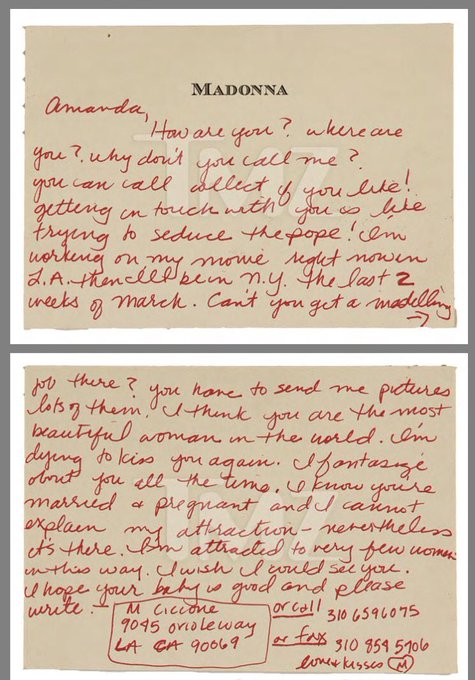 MADONNA
Amanda,
How are you? where are
you? why don't you call me?
you can call collect if you like!
getting in touch with you is like
trying to seduce the pope! I'm
working on my movie right now in
L.A. then I'll be in N.Y. the last 2
weeks of March. Can't you get a modelling
→
job there? you have to send me pictures
lots of them. I think you are the most
beautiful woman in the world. I'm
dying to kiss you again. I fantasize
about you all the time. I know you're
married & pregnant and I cannot
explain my attraction - nevertheless
it's there. I'm attracted to very few women
in this way. I wish I could see you.
I hope your baby is good and please
write. -
M Ciccone
9045 oriole way
LA CA 90069
or call 310 6596075
or fax 310 854 5706
love & kisses M
TMZ
TMZ